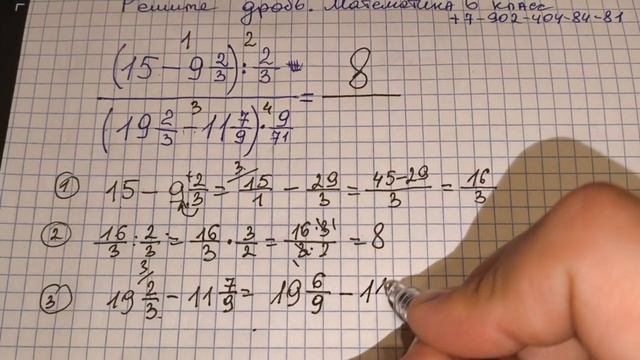 Решите дробь. Математика 6 класс
+7-902-404-84-81
1 2
(15 - 9 2/3) : 2/3
8
=
3 4
(19 2/3 - 11 7/9) · 9/71
① 15 - 9 2/3 = 15/1 - 29/3 = 45-29/3 = 16/3
② 16/3 : 2/3 = 16/3 · 3/2 = 16·3/3·2 = 8
③ 19 2/3 - 11 7/9 = 19 6/9 - 11